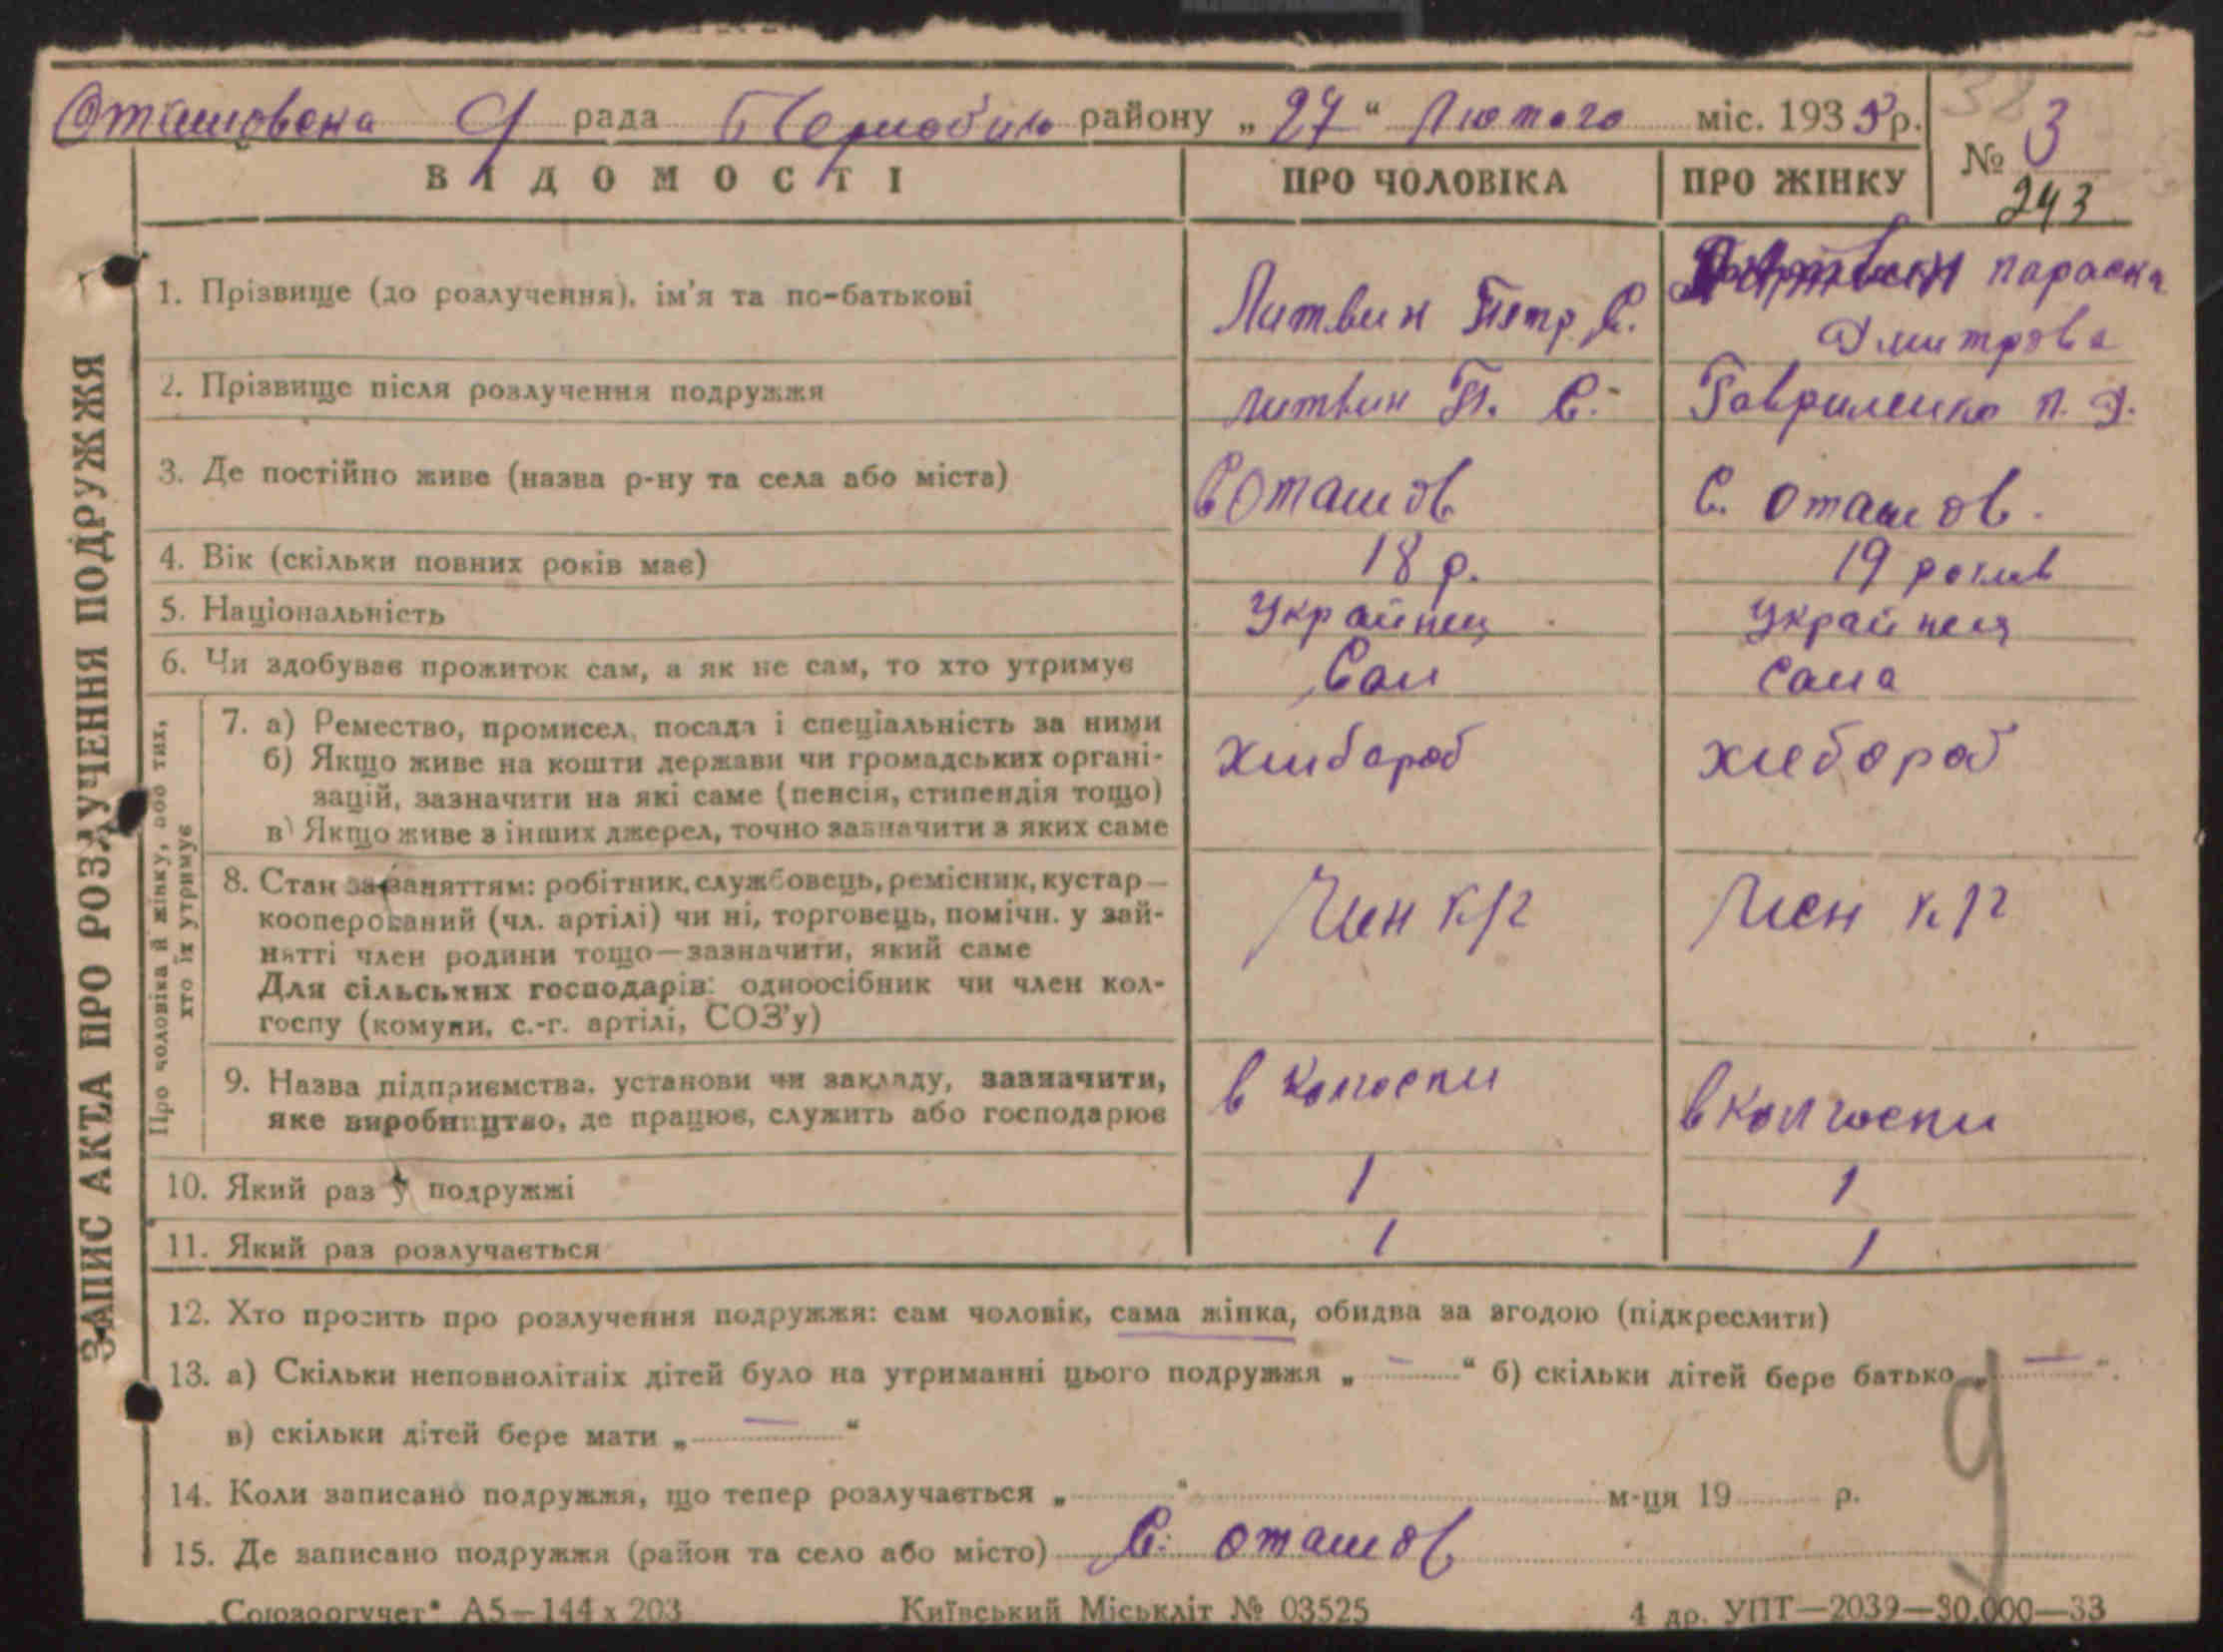 Оташовска С рада Чорнобил району „27“ Лютого міс. 1935 р.
№ 3
243
ВІДОМОСТІ ПРО ЧОЛОВІКА ПРО ЖІНКУ
1. Прізвище (до розлучення), ім'я та по-батькові Литвин Петр С. Параска
Дмитрова
2. Прізвище після розлучення подружжя Литвин П. С. Гавриленко П. Д.
3. Де постійно живе (назва р-ну та села або міста) С Оташов С. Оташов.
4. Вік (скільки повних років має) 18 р. 19 рокив
5. Національність Украйнец Украйнця
6. Чи здобуває прожиток сам, а як не сам, то хто утримує Сам Сама
Про чоловіка й жінку, або тих,
хто їх утримує
7. а) Ремество, промисел, посада і спеціальність за ними хлибороб хлебороб
б) Якщо живе на кошти держави чи громадських органі-
зацій, зазначити на які саме (пенсія, стипендія тощо)
в) Якщо живе з інших джерел, точно зазначити з яких саме
8. Стан за заняттям: робітник, службовець, ремісник, кустар—
кооперований (чл. артілі) чи ні, торговець, помічн. у зай- Член к/г Член к/г
нятті член родини тощо—зазначити, який саме
Для сільських господарів: одноосібник чи член кол-
госпу (комуни, с.-г. артілі, СОЗ'у)
9. Назва підприємства, установи чи закладу, зазначити, в колгоспи в колгоспи
яке виробництво, де працює, служить або господарює
10. Який раз у подружжі 1 1
11. Який раз розлучається 1 1
12. Хто просить про розлучення подружжя: сам чоловік, сама жінка, обидва за згодою (підкреслити)
13. а) Скільки неповнолітніх дітей було на утриманні цього подружжя „—“ б) скільки дітей бере батько „—“.
в) скільки дітей бере мати „—“
14. Коли записано подружжя, що тепер розлучається „ “ м-ця 19 р.
15. Де записано подружжя (район та село або місто) С. Оташов
9
„Союзоргучет“ А5—144 х 203 Київський Міськліт № 03525 4 др. УПТ—2039—30.000—33
ЗАПИС АКТА ПРО РОЗЛУЧЕННЯ ПОДРУЖЖЯ